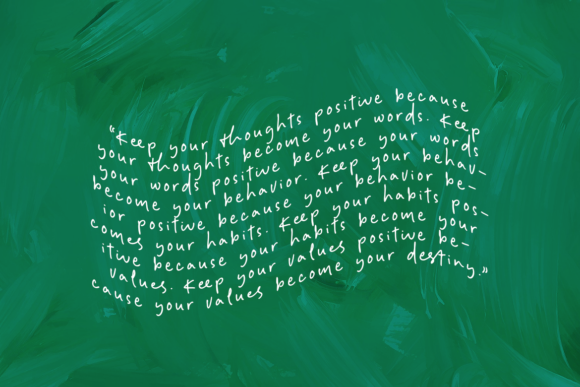 “Keep your thoughts positive because
your thoughts become your words. Keep
your words positive because your words
become your behavior. Keep your behav-
ior positive because your behavior be-
comes your habits. Keep your habits pos-
itive because your habits become your
values. Keep your values positive be-
cause your values become your destiny.”